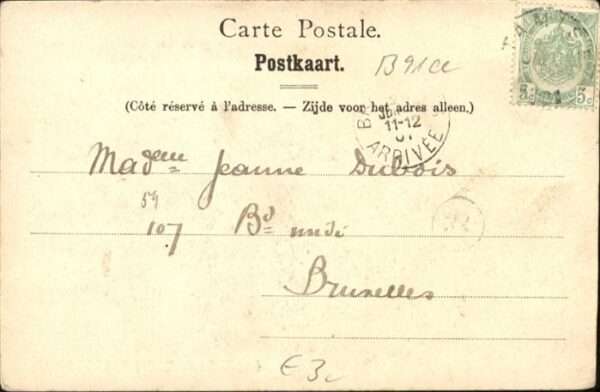 Carte Postale.
Postkaart.
B91cc
(Côté réservé à l'adresse. — Zijde voor het adres alleen.)
11-12
ARRIVÉE
5c 5c
Madelle Jeanne Dubois
59
107 Bd
Bruxelles
€3